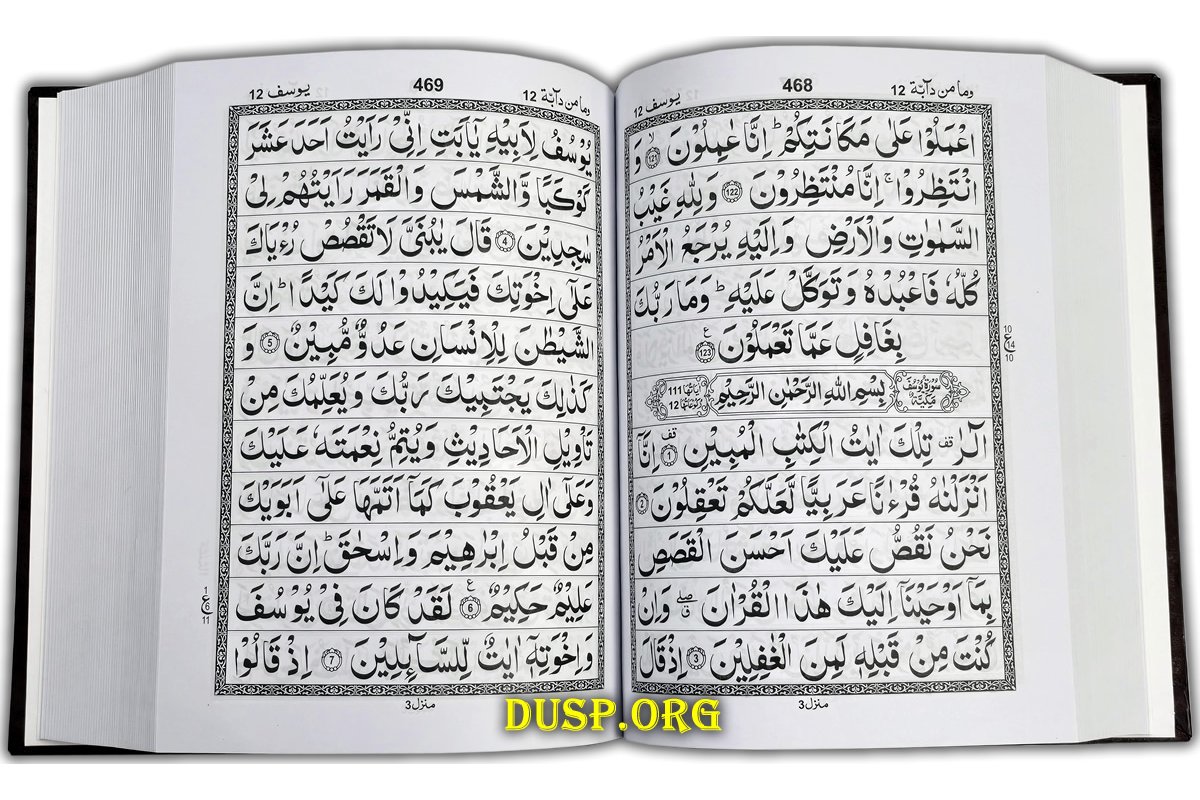 وما من دآبة 12
468
يوسف 12
اعْمَلُوْا عَلٰى مَكَانَتِكُمْ ؕ اِنَّا عٰمِلُوْنَ ۙ 121 وَ
انْتَظِرُوْا ۚ اِنَّا مُنْتَظِرُوْنَ 122 وَلِلّٰهِ غَيْبُ
السَّمٰوٰتِ وَالْاَرْضِ وَاِلَيْهِ يُرْجَعُ الْاَمْرُ
كُلُّهٗ فَاعْبُدْهُ وَتَوَكَّلْ عَلَيْهِ ؕ وَمَا رَبُّكَ
بِغَافِلٍ عَمَّا تَعْمَلُوْنَ ع 123
10
ع
14
10
سُوْرَةُ يُوْسُفَ مَكِّيَّةٌ
بِسْمِ اللّٰهِ الرَّحْمٰنِ الرَّحِيْمِ
اٰيَاتُهَا 111
رُكُوْعَاتُهَا 12
الٓرٰ قف تِلْكَ اٰيٰتُ الْكِتٰبِ الْمُبِيْنِ قف 1 اِنَّاۤ
اَنْزَلْنٰهُ قُرْءٰنًا عَرَبِيًّا لَّعَلَّكُمْ تَعْقِلُوْنَ 2
نَحْنُ نَقُصُّ عَلَيْكَ اَحْسَنَ الْقَصَصِ
بِمَاۤ اَوْحَيْنَاۤ اِلَيْكَ هٰذَا الْقُرْاٰنَ صلے ق وَاِنْ
كُنْتَ مِنْ قَبْلِهٖ لَمِنَ الْغٰفِلِيْنَ 3 اِذْ قَالَ
منزل 3
وما من دآبة 12
469
يوسف 12
يُوْسُفُ لِاَبِيْهِ يٰۤاَبَتِ اِنِّىْ رَاَيْتُ اَحَدَ عَشَرَ
كَوْكَبًا وَّالشَّمْسَ وَالْقَمَرَ رَاَيْتُهُمْ لِىْ
سٰجِدِيْنَ 4 قَالَ يٰبُنَىَّ لَا تَقْصُصْ رُءْيَاكَ
عَلٰٓى اِخْوَتِكَ فَيَكِيْدُوْا لَكَ كَيْدًا ؕ اِنَّ
الشَّيْطٰنَ لِلْاِنْسَانِ عَدُوٌّ مُّبِيْنٌ 5 وَ
كَذٰلِكَ يَجْتَبِيْكَ رَبُّكَ وَيُعَلِّمُكَ مِنْ
تَاْوِيْلِ الْاَحَادِيْثِ وَيُتِمُّ نِعْمَتَهٗ عَلَيْكَ
وَعَلٰٓى اٰلِ يَعْقُوْبَ كَمَاۤ اَتَمَّهَا عَلٰٓى اَبَوَيْكَ
مِنْ قَبْلُ اِبْرٰهِيْمَ وَاِسْحٰقَ ؕ اِنَّ رَبَّكَ
عَلِيْمٌ حَكِيْمٌ ع 6 لَقَدْ كَانَ فِىْ يُوْسُفَ
1
ع
6
11
وَاِخْوَتِهٖۤ اٰيٰتٌ لِّلسَّآئِلِيْنَ 7 اِذْ قَالُوْا
منزل 3
DUSP.ORG